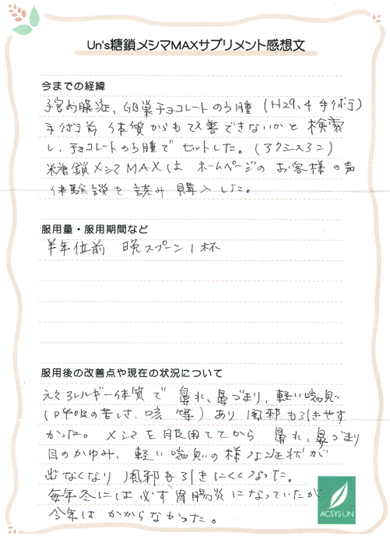 Un's糖鎖メシマMAXサプリメント感想文
今までの経緯
子宮内膜症、卵巣チョコレートのう腫（H29.4 手術）
手術前 体質からも改善できないかと検索
し、チョコレートのう腫でヒットした。（アクシスアン）
糖鎖メシマMAXは ホームページの お客様の声
体験談を読み購入した。
服用量・服用期間など
半年位前 晩スプーン1杯
服用後の改善点や現在の状況について
元々アレルギー体質で 鼻水、鼻づまり、軽い喘息
（呼吸の苦しさ、咳 等）あり 風邪も引きやす
かった。メシマを服用してから 鼻水、鼻づまり
目のかゆみ、軽い喘息の様な症状が
出なくなり 風邪も引きにくくなった。
毎年冬には必ず胃腸炎になっていたが
今年は かからなかった。
ACSYSUN